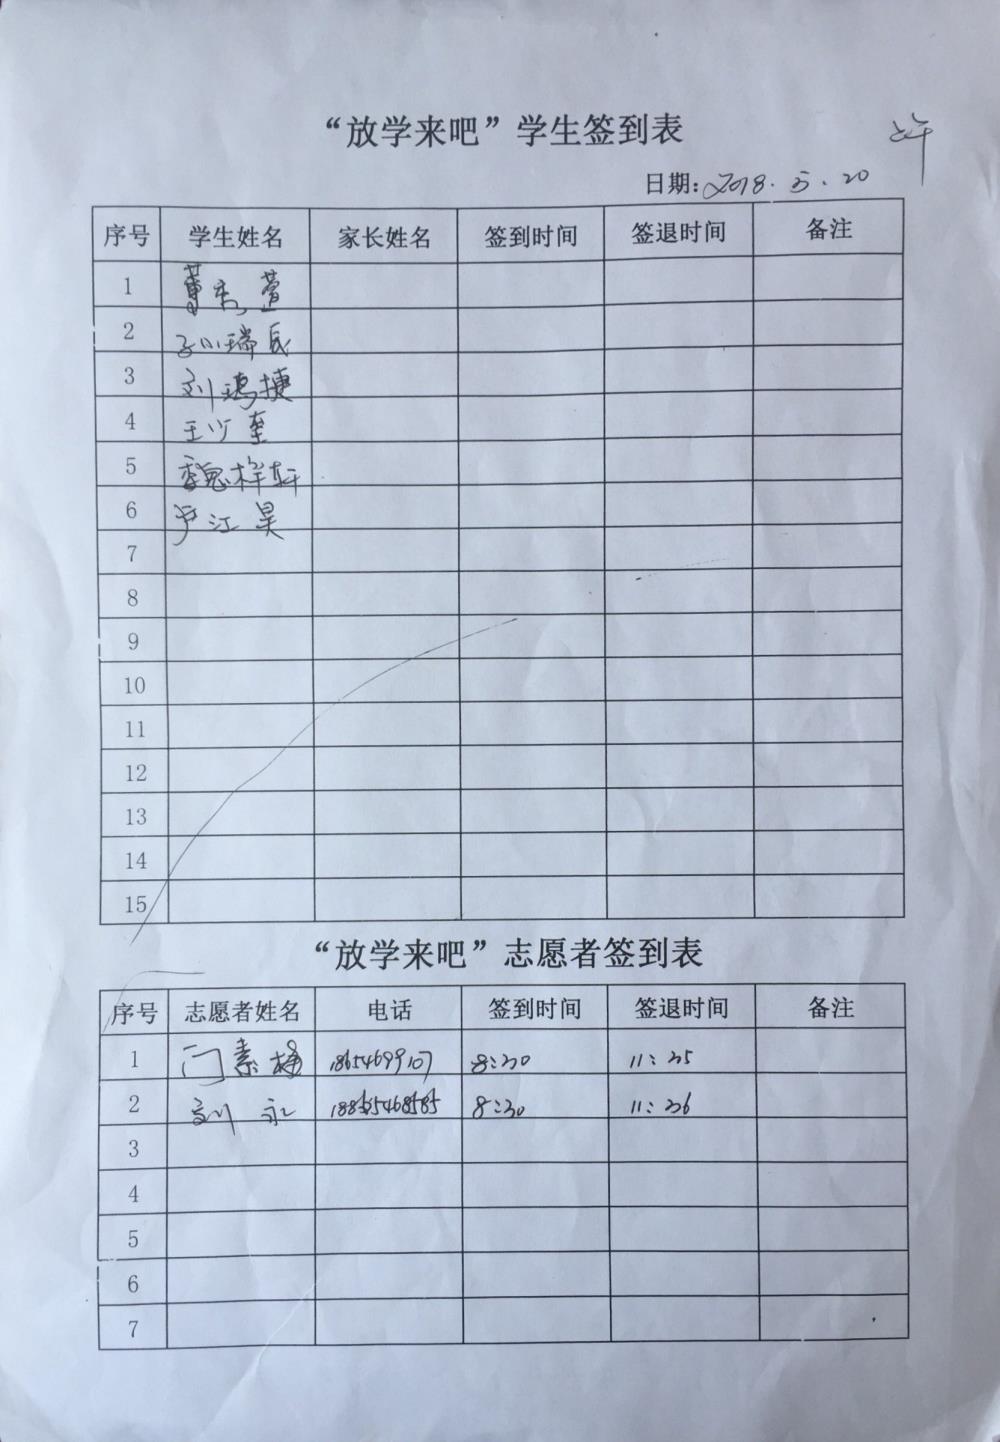 “放学来吧”学生签到表
上午
日期:2018.5.20
序号 学生姓名 家长姓名 签到时间 签退时间 备注
1 董 萱
2 孙瑞辰
3 刘鸿捷
4 王少奎
5 魏祥轩
6 尹江昊
7
8
9
10
11
12
13
14
15
“放学来吧”志愿者签到表
序号 志愿者姓名 电话 签到时间 签退时间 备注
1 门素梅 18654699107 8:30 11:35
2 刘永 8:30 11:36
3
4
5
6
7